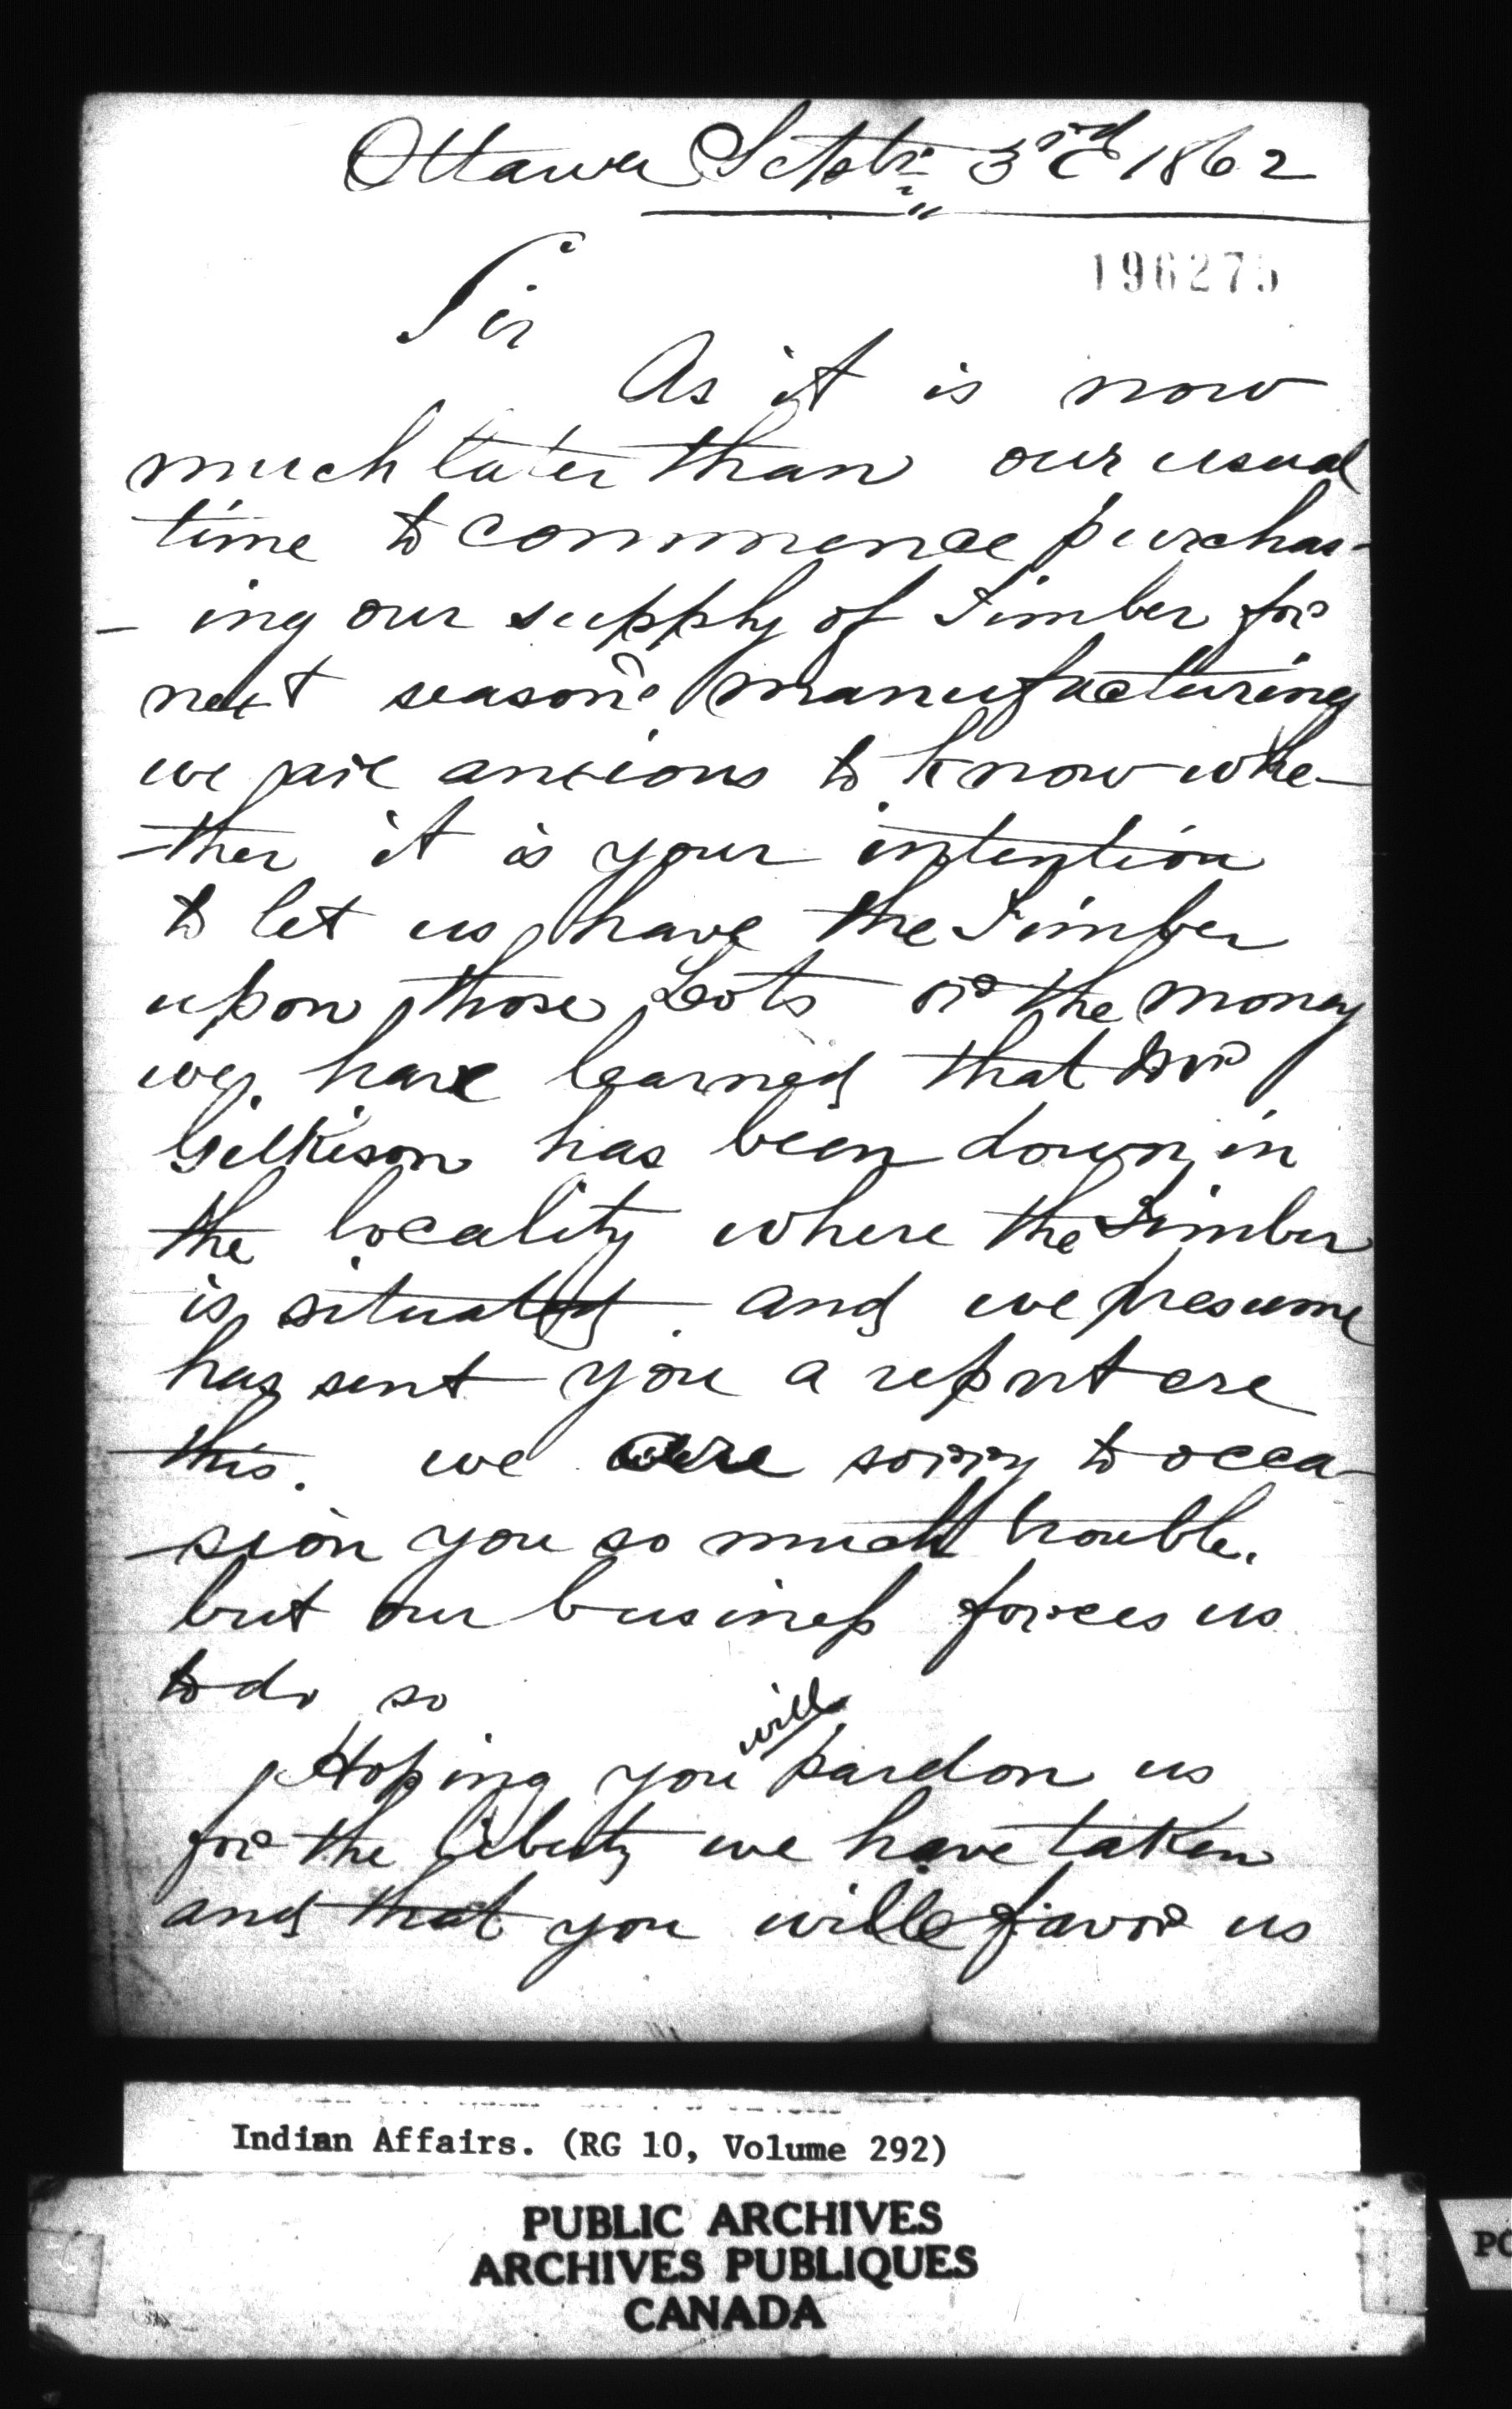 Ottawa Septbr 3rd 1862
196275
Sir
As it is now
much later than our usual
time to commence purchas-
- ing our supply of Timber for
next season's manufacturing
we are anxious to know whe-
-ther it is your intention
to let us have the Timber
upon those Lots or the money
we have learned that Mr
Gilkison has been down in
the locality where the Timber
is situated. and we presume
has sent you a report ere
this. we are sorry to occa-
-sion you so much trouble.
but our business forces us
to do so
Hoping you will pardon us
for the liberty we have taken
and that you will favor us
Indian Affairs. (RG 10, Volume 292)
PUBLIC ARCHIVES
ARCHIVES PUBLIQUES
CANADA